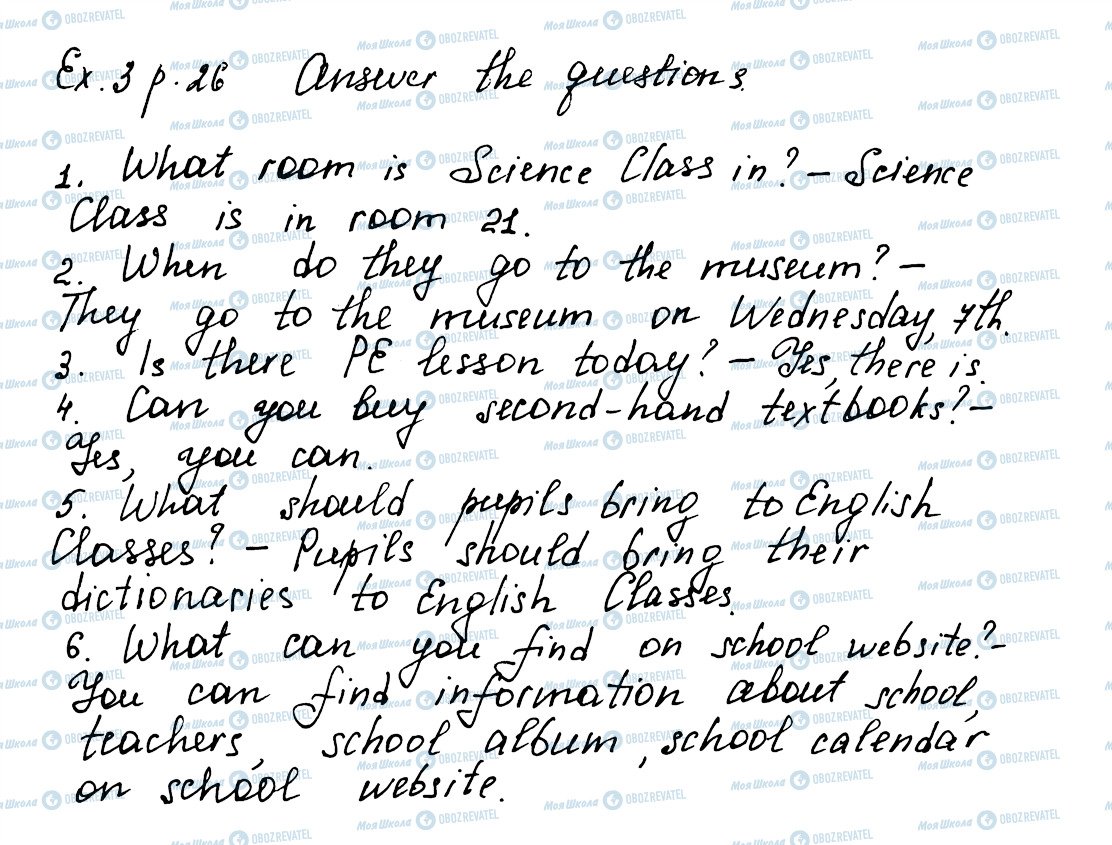 Ex. 3 p. 26 Answer the questions.
1. What room is Science Class in? – Science
Class is in room 21.
2. When do they go to the museum? –
They go to the museum on Wednesday, 7th.
3. Is there PE lesson today? – Yes, there is.
4. Can you buy second-hand textbooks? –
Yes, you can.
5. What should pupils bring to English
Classes? – Pupils should bring their
dictionaries to English Classes.
6. What can you find on school website? –
You can find information about school,
teachers, school album, school calendar
on school website.
МояШкола OBOZREVATEL